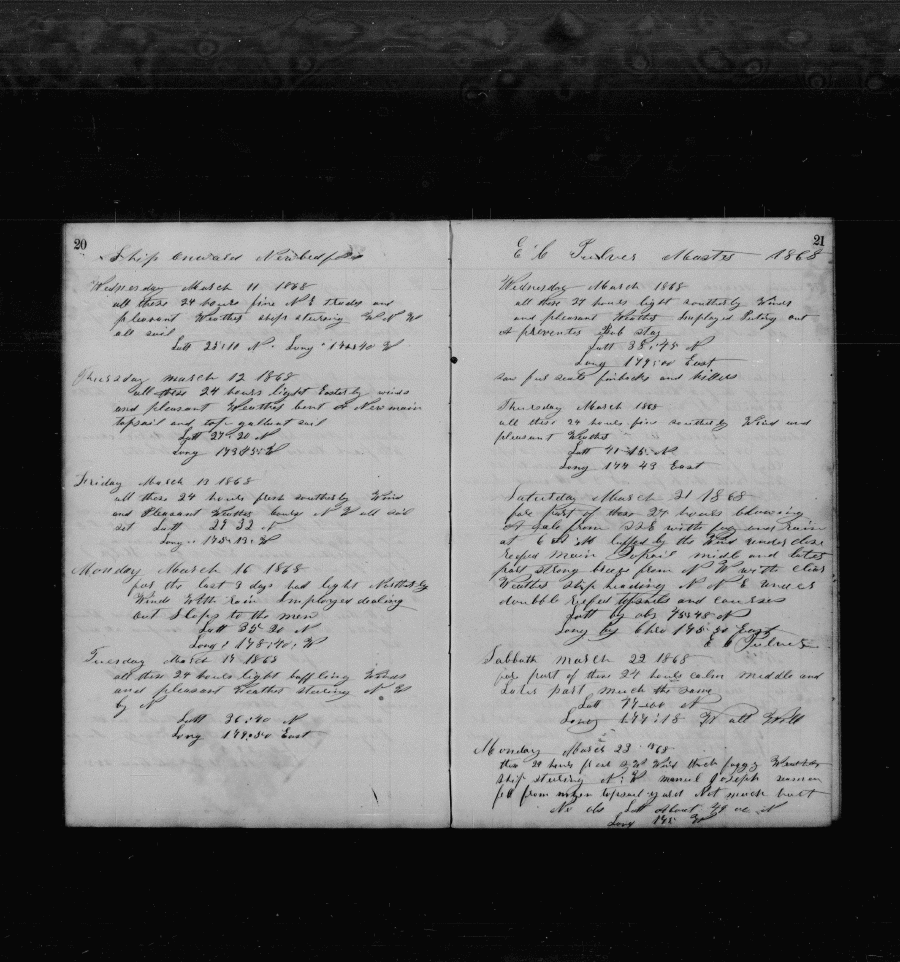 20
Ship Onward New bedford
Wednesday March 11 1868
all these 24 hours fine N E trades and
pleasant Weather ship steering W N W
all sail
Latt 25:11 N. Long
Thursday march 12 1868
all these 24 hours light Easterly winds
and pleasant Weather bent a New main
topsail and top gallant sail
Latt 27:20 N
Long
Friday March 13 1868
all these 24 hours fresh southerly Wind
and Pleasant Weather course N W all sail
set Latt 29 32 N
Long 175:13: W
Monday March 16 1868
for the last 3 days had light Northerly
Winds With rain Employed dealing
out Slops to the men
Latt 35 20 N
Long: 178:40: W
Tuesday March 17 1868
all these 24 hours light baffling Winds
and pleasant Weather steering N W
by N
Latt 36:40 N
Long 179:50 East
21
E C Pulver Master 1868
Wednesday March 1868
all these 24 hours light southerly Winds
and pleasant Weather Employed Puting out
A preventer Bob stay
Latt 38:45 N
Long 179:00 East
saw fur seals finbacks and killers
Thursday March 1868
all these 24 hours fine southerly Wind and
pleasant Weather
Latt 41 15 N
Long 177 43 East
Saturday March 21 1868
fore part of these 24 hours blowing
A gale from SSE with fog and rain
at 6 A M luffed by the Wind under close
reefed main Topsail midle and latter
part strong breeze from N W with clear
Weather ship heading N N E under
doubble reefed topsails and courses
Latt by obs 43:48 N
Long by Chro 175:50 East
E C Pulver
Sabbath march 22 1868
fore part of these 24 hours calm middle and
Later part much the same
Latt N
Long 177:18 all Well
Monday March 23 1868
these 24 hours fresh SW Wind thick foggy Weather
Ship steering N: W manuel Joseph seaman
fell from mizen topsail yard Not much hurt
No obs Latt About N
Long 175